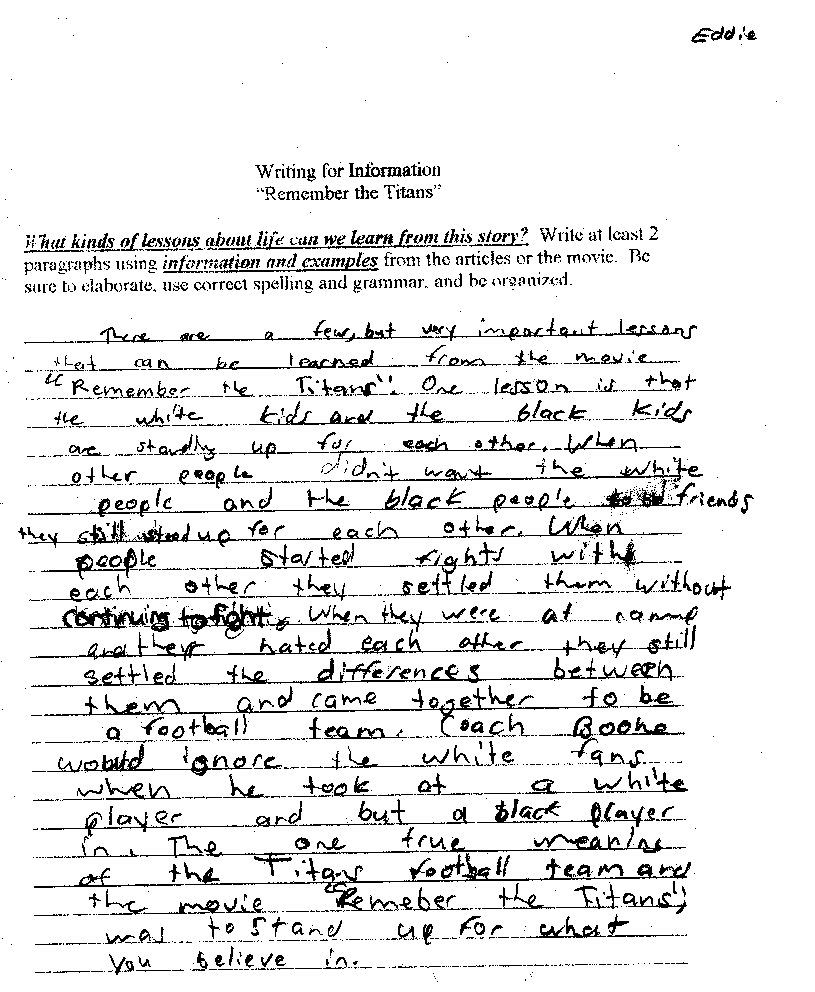 Eddie
Writing for Information
"Remember the Titans"
What kinds of lessons about life can we learn from this story? Write at least 2
paragraphs using information and examples from the articles or the movie. Be
sure to elaborate, use correct spelling and grammar, and be organized.
There are a few, but very important lessons
that can be learned from the movie
"Remember the Titans". One lesson is that
the white kids and the black kids
are standing up for each other. When
other people didn't want the white
people and the black people to be friends
they still stood up for each other. When
people started fights with
each other they settled them without
continuing to fight. When they were at camp
and they hated each other they still
settled the differences between
them and came together to be
a football team. Coach Boone
would ignore the white fans
when he took at a white
player and but a black player
in. The one true meaning
of the Titans football team and
the movie "Remeber the Titans",
was to stand up for what
you believe in.